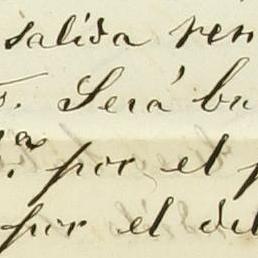 salida ren
s. Será bu
ª. por el p
por el del